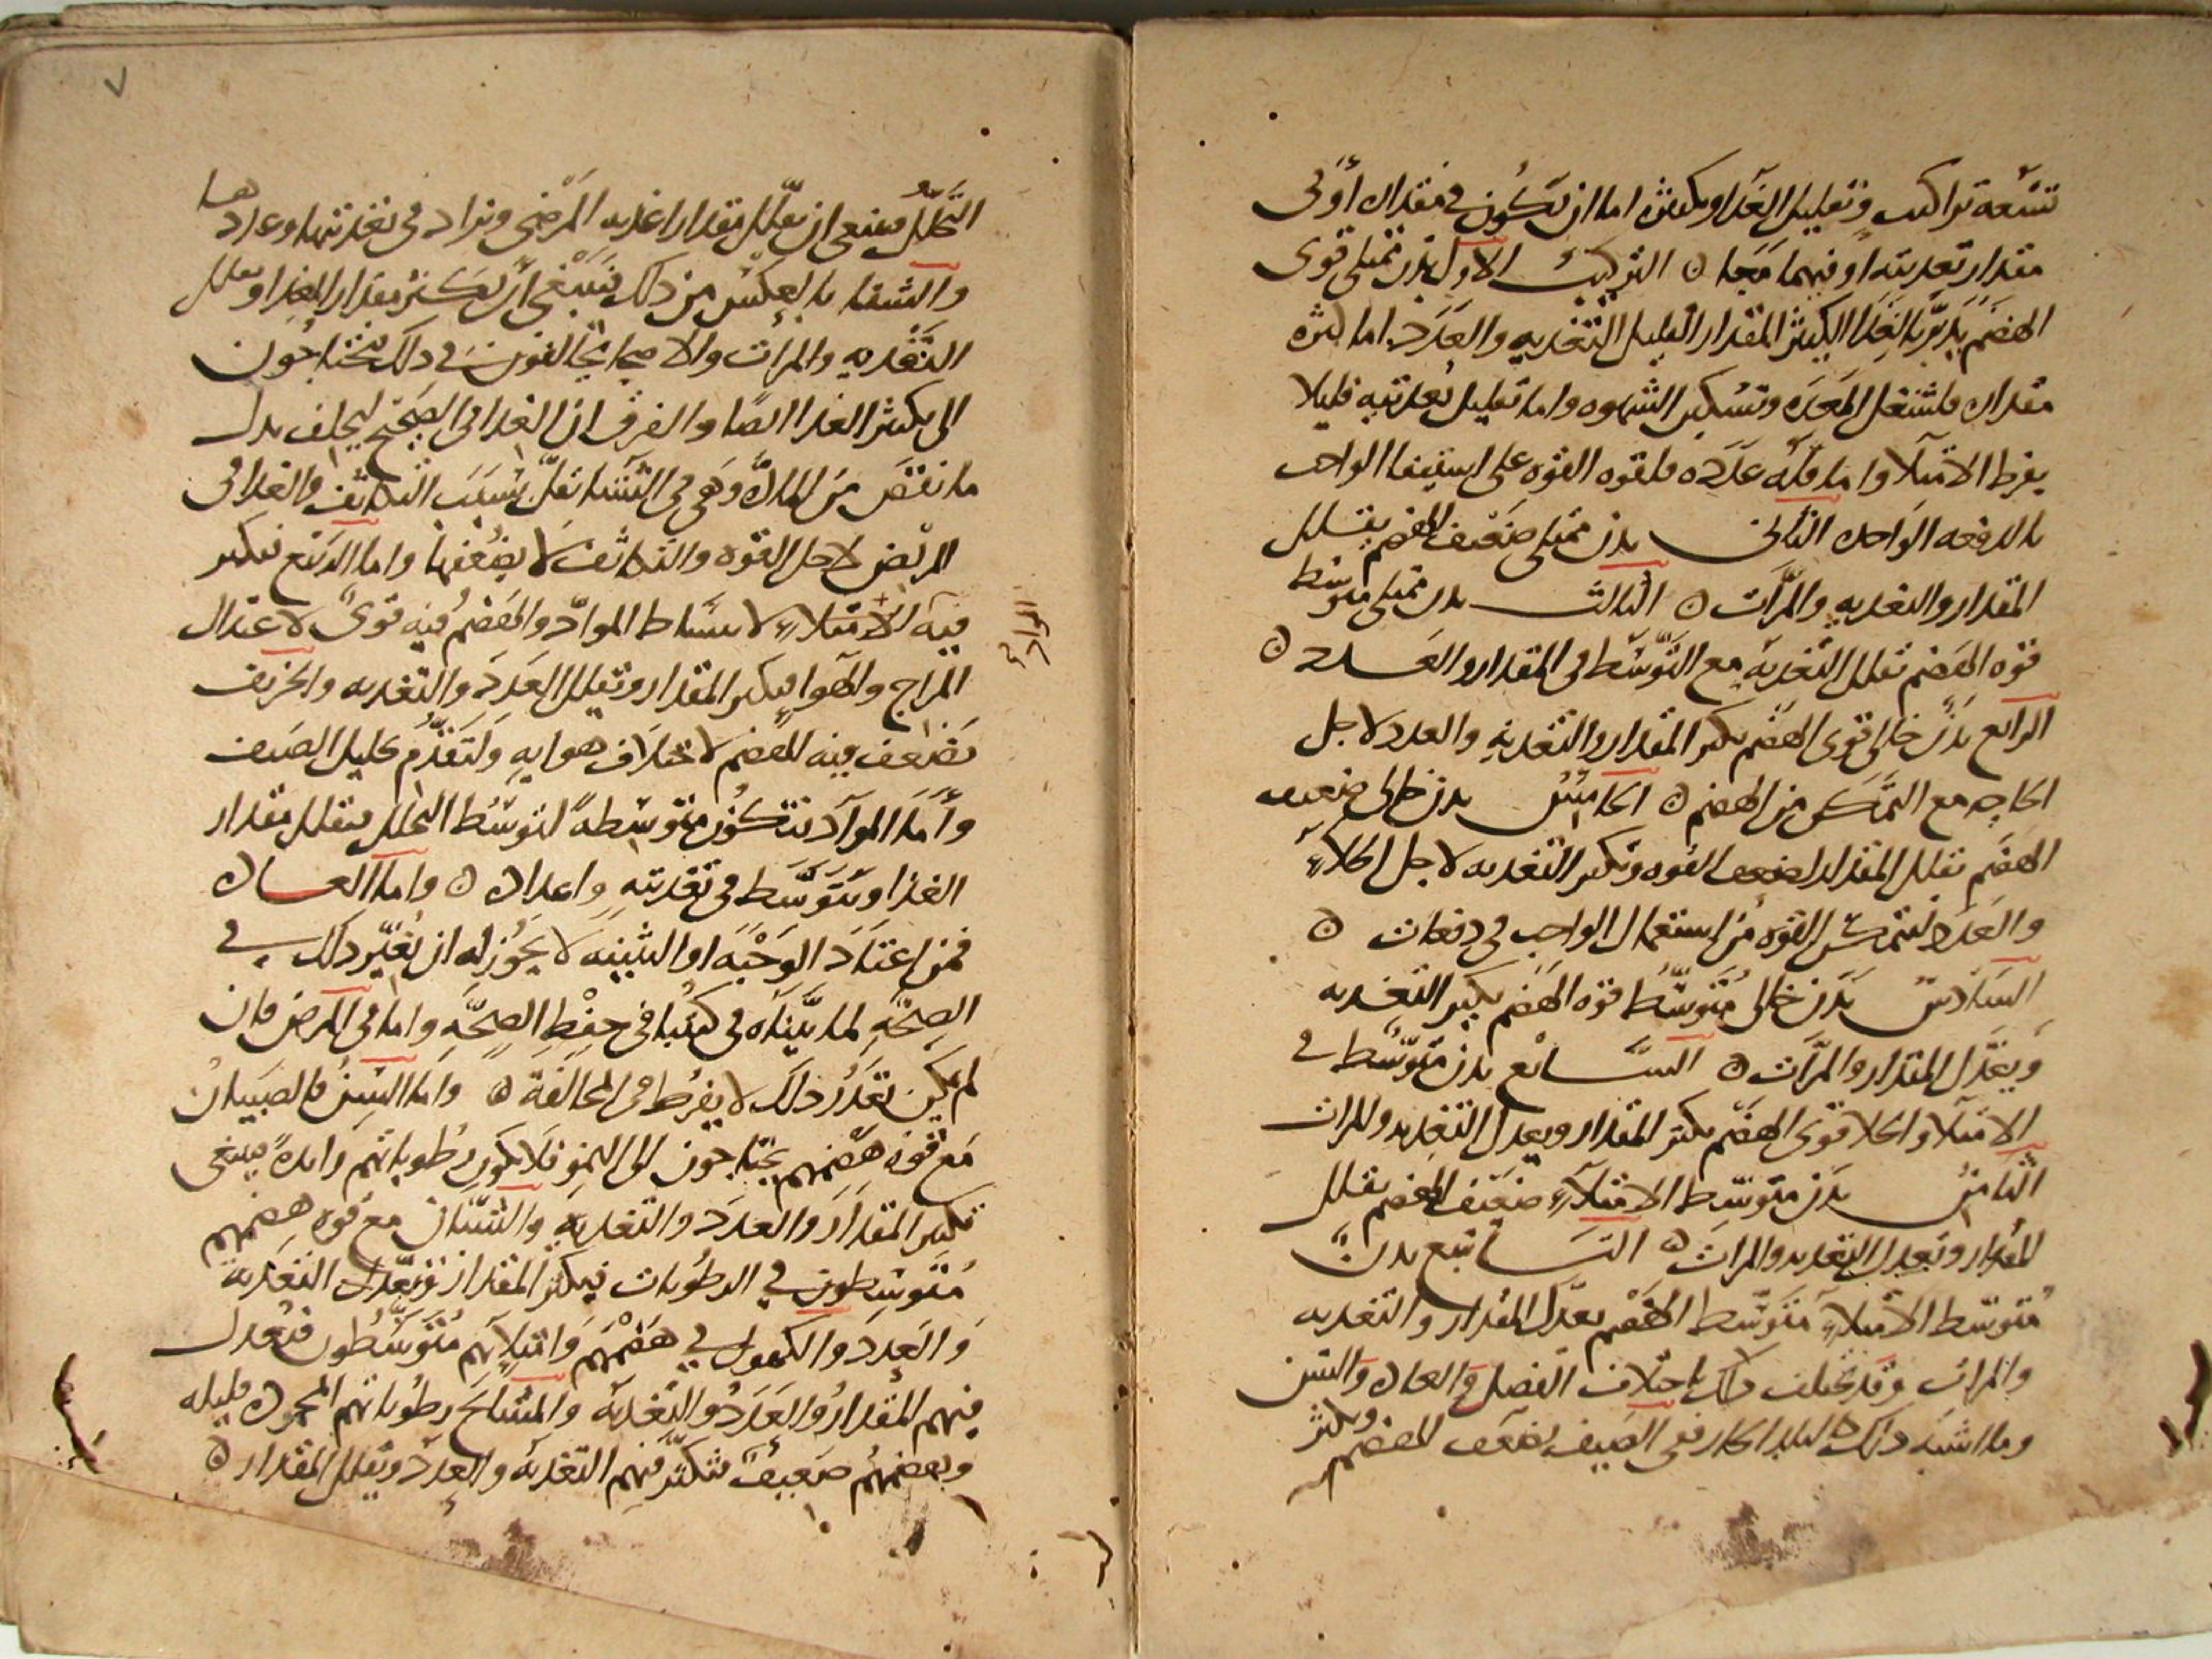 تسعة تراكيب وتقليل الغذا وتكثيره اما ان تكون في مقداره أو في
مقدار تغديته او فيهما معا ۞ التركيب الاول بدن ممتلى قوى
الهضم يدبر بالغذا الكثير المقدار القليل التغديه والعدد اما كثره
مقداره فلشغل المعده وتسكين الشهوه واما تقليل تغديته فليلا
يفرط الامتلا واما قله عدده فلقوه القوه على استيفا الواجب
بالدفعه الواحده الثانى بدن ممتلى ضعيف الهضم يقلل
المقدار والتغديه والمرّات ۞ الثالث بدن ممتلى متوسط
قوه الهضم تقلل التغديه مع التوسط فى المقدار والعدد ۞
الرابع بدن خالى قوى الهضم يكثر المقدار والتغديه والعدد لاجل
الحاجه مع التمكن من الهضم ۞ الخامس بدن خالى ضعيف
الهضم تقلل المقدار لضعف القوه وتكثر التغديه لاجل الخلاء
والعدد لتتمكن القوه من استعمال الواجب في دفعات ۞
السادس بدن خالى متوسط قوه الهضم يكثر التغديه
ويعدل المقدار والمرّات ۞ السابع بدن متوسط في
الامتلا والخلا قوى الهضم يكثر المقدار ويعدل التغديه والمرات
الثامن بدن متوسط الامتلاء ضعيف الهضم يقلل
المقدار ويعدل التغديه والمرات ۞ التاسع بدن
متوسط الامتلاء متوسط الهضم يعدل المقدار والتغديه
والمرات وقد يختلف ذلك باختلاف الفصل والعاده والسن
وما اشبه ذلك البلد الحار ففى الصيف يضعف الهضم ويكثر
٧
التحلل فينبغى ان يقلل مقدار اغديه المرضى ويزاد فى تغديتها وعددها
والشتا بالعكس من ذلك فينبغى ان يكثر مقدار الغذا ويقلل
التغديه والمرات والاصحا يخالفون في ذلك يحتاجون
الى تكثير الغدا ايضًا والفرق ان الغدا فى الصحيح ليخلف بدل
ما نقص من المادّه وهى فى الشتا تقلّ بسبب التكاثف والغدا فى
المريض لاجل القوه والتكاثف لا يضعفها واما الربيع فيكثر
فيه الامتلاء لانبساط الموادّ والهضم فيه قوى لاعتدال
المزاج والهوا فيكثر المقدار وتقليل العدد والتغديه والخريف
يضعف فيه الهضم لاختلاف هوايه ولتقدم تحليل الصيف
وأما الموادّ فتكون متوسطه لتوسط التحلل فيقلل مقدار
الغذا ويتوسط في تغديته واعداده ۞ واما العاده
فمن اعتاد الوجبه او الثنيه لا يجوز له ان يغيّر ذلك في
الصحة لما بيّناه في كتبنا فى حفظ الصحّه واما فى المرض فان
لم يكن تغير ذلك لا يفرط فى المخالفة ۞ واما السن فالصبيان
مع قوة هضمهم يحتاجون الى النمو فلا تكون رطوباتهم زايدة فينبغى
تكثير المقدار والعدد والتغديه والشبّان مع قوه هضمهم
متوسطون في الرطوبات فيكثر المقدار ويعدل التغديه
والعدد والكهول في هضمهم وامتلائهم متوسطون فتعدل
فيهم المقدار والعدد والتغديه والمشايخ رطوباتهم قليله
وهضمهم ضعيف فتكثر فيهم التغديه والعدد وتقلل المقدار ۞